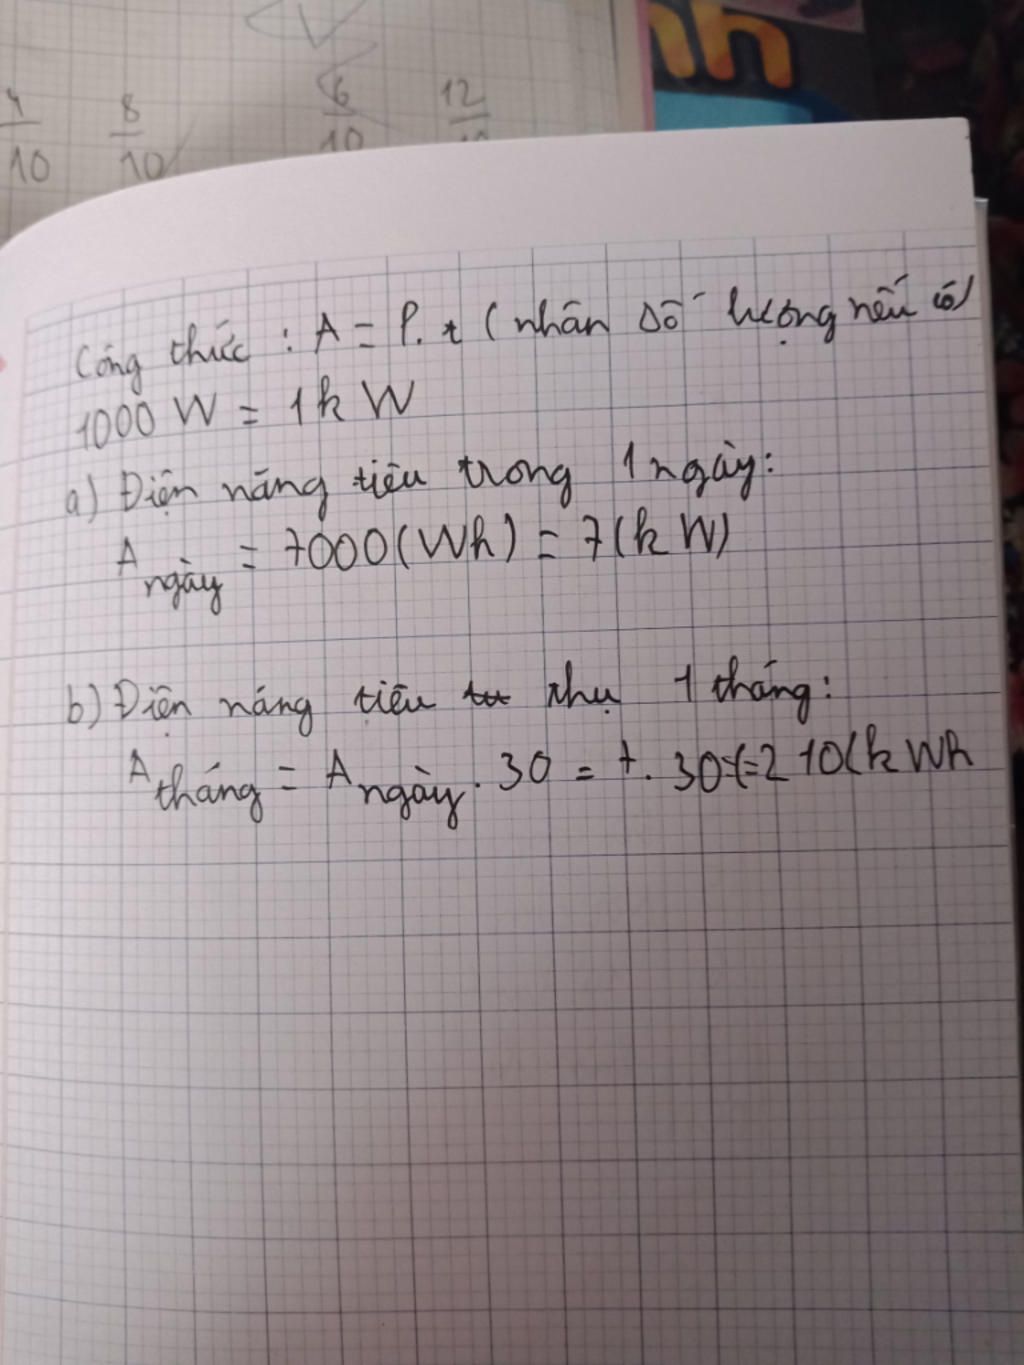 4 8 6 12
10 10 10 10
nh
Công thức : A = P. t ( nhân số lượng nếu có)
1000 W = 1k W
a) Điện năng tiêu trong 1 ngày:
A ngày = 7000(Wh) = 7(k W)
b) Điện năng tiêu thụ 1 tháng:
A tháng = A ngày . 30 = 7. 30 = 210(k Wh